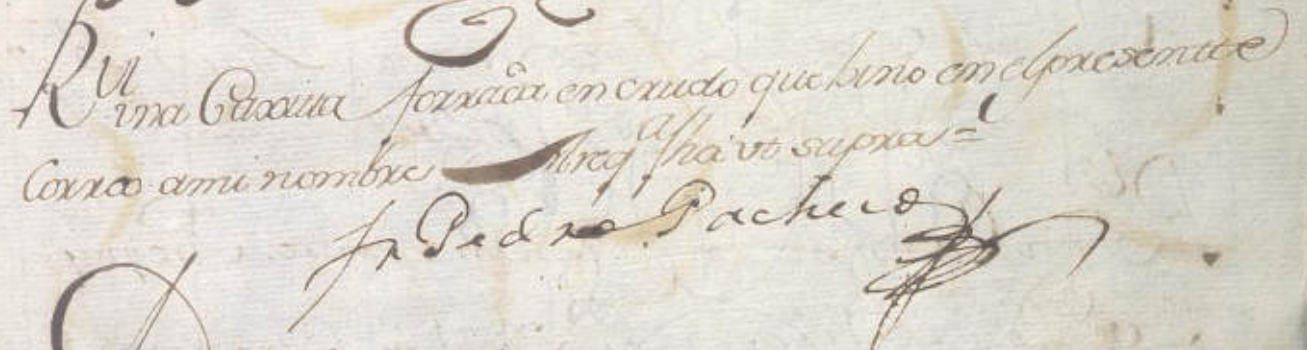 Rvi una Caxita forrada en crudo que bino en el presente
Correo a mi nombre Areqª fha vt supra =
fr Pedro Pacheco